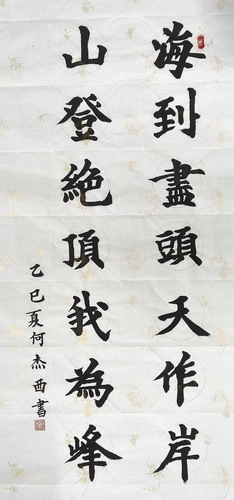 海到盡頭天作岸
山登絶頂我為峰
乙巳夏何杰西書